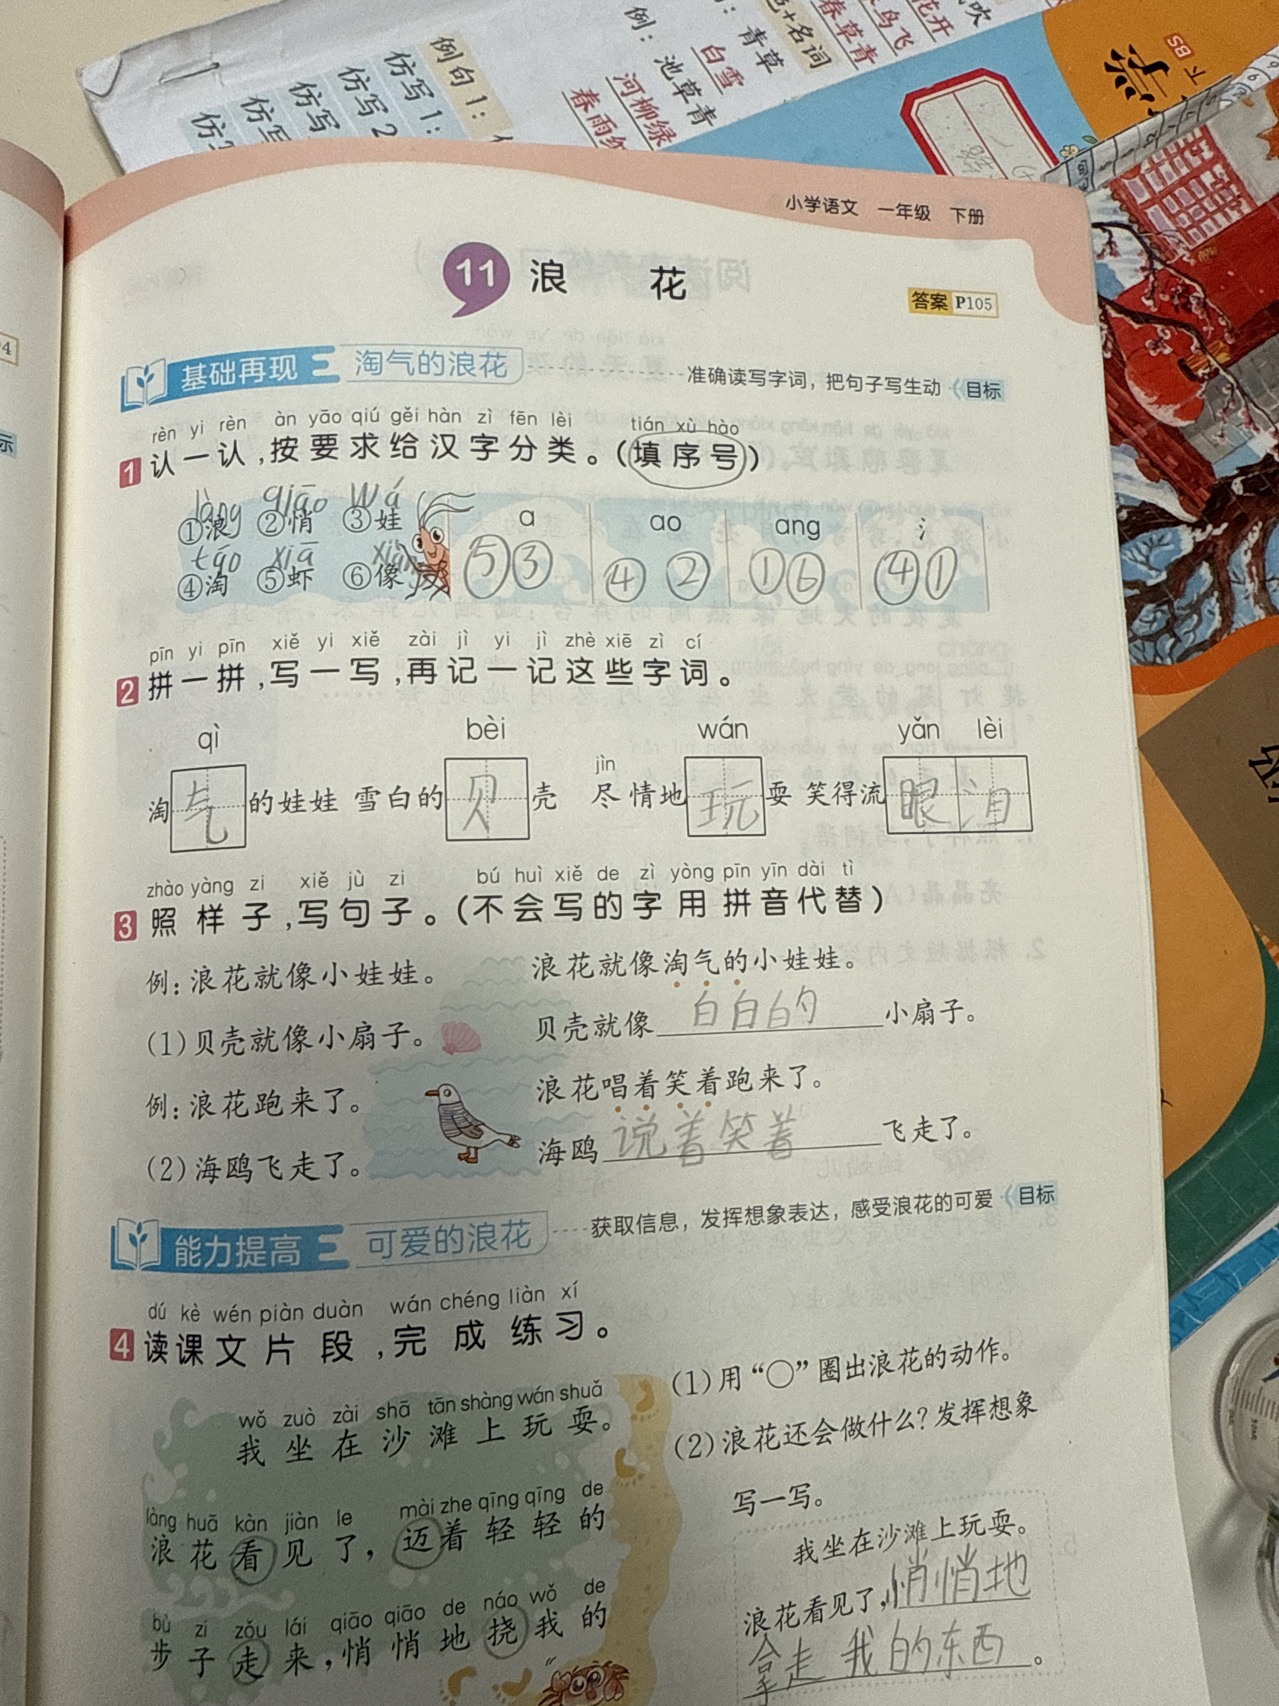 例句1:
仿写1:
仿写2
仿写
仿写
例:青草
白雪
例:池草青
河柳绿
春草青
小学语文 一年级 下册
11 浪 花
答案 P105
基础再现 淘气的浪花 准确读写字词，把句子写生动 目标
rèn yi rèn àn yāo qiú gěi hàn zì fēn lèi tián xù hào
1 认一认,按要求给汉字分类。(填序号)
làng qiāo wá
①浪 ②悄 ③娃 a ao ang 氵
táo xiā xiàng
④淘 ⑤虾 ⑥像 ⑤③ ④② ①⑥ ④①
pīn yi pīn xiě yi xiě zài jì yi jì zhè xiē zì cí
2 拼一拼,写一写,再记一记这些字词。
qì bèi wán yǎn lèi
jìn
淘气的娃娃 雪白的贝壳 尽情地玩耍 笑得流眼泪
zhào yàng zi xiě jù zi bú huì xiě de zì yòng pīn yīn dài tì
3 照样子,写句子。(不会写的字用拼音代替)
例:浪花就像小娃娃。 浪花就像淘气的小娃娃。
(1)贝壳就像小扇子。 贝壳就像白白的小扇子。
例:浪花跑来了。 浪花唱着笑着跑来了。
(2)海鸥飞走了。 海鸥说着笑着飞走了。
能力提高 可爱的浪花 获取信息，发挥想象表达，感受浪花的可爱 目标
dú kè wén piàn duàn wán chéng liàn xí
4 读课文片段,完成练习。
wǒ zuò zài shā tān shàng wán shuǎ
我坐在沙滩上玩耍。
làng huā kàn jiàn le mài zhe qīng qīng de
浪花看见了，迈着轻轻的
bù zi zǒu lái qiāo qiāo de náo wǒ de
步子走来,悄悄地挠我的
(1)用“○”圈出浪花的动作。
(2)浪花还会做什么?发挥想象
写一写。
我坐在沙滩上玩耍。
浪花看见了,悄悄地
拿走我的东西。